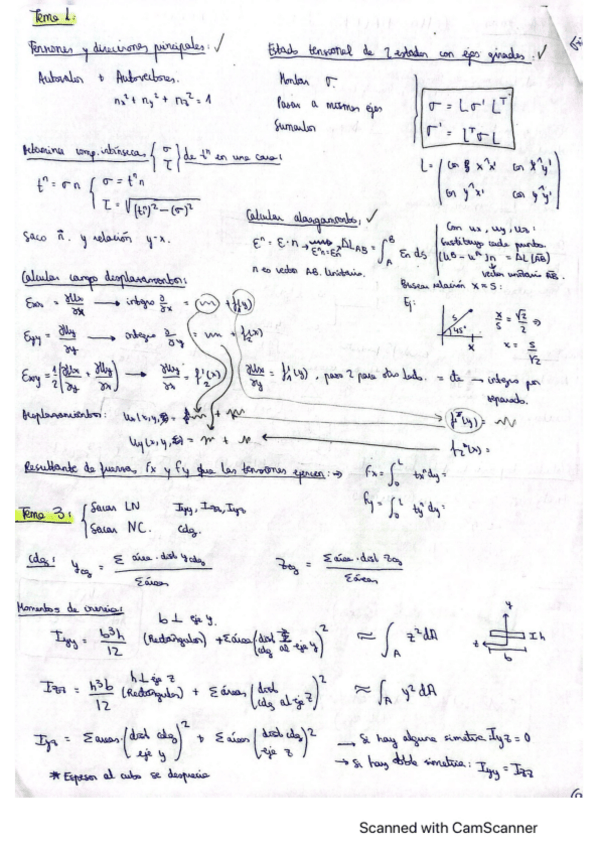 Tema 1:
Tensiones y direcciones principales: ✓
Autovalor + Autovectores.
nx² + ny² + nz² = 1
Estado tensional de 2 estados con ejes girados: ✓
Montar σ.
Pasar a mismos ejes
Sumarlos
σ = L σ' Lᵀ
σ' = Lᵀ σ L
Determina comp. intrínsecas { σ τ } de tⁿ en una cara:
tⁿ = σ n { σ = tⁿ n
τ = √((tⁿ)² − (σ)²
Saco n̄. y relación y-x.
Calcular alargamiento: ✓
n es vector AB. Unitario.
Con ux, uy, uz:
Sustituyo cada punto
vector unitario AB.
Buscar relación x = s:
Ej:
s
45°
x
x/s = √2/2 ⇒
x = s/√2
Calcular campo desplazamientos:
Exx = ∂Ux/∂x → integro ∂/∂x = + f1(y)
Eyy = ∂Uy/∂y → integro ∂/∂y = + f2(x)
Exy = 1/2 (∂Ux/∂y + ∂Uy/∂x) → ∂Uy/∂x = f2'(x) ∂Ux/∂y = f1'(y), paso 2 para otro lado. = cte → integro por separado.
Desplazamientos:
Resultante de fuerzas, Fx y Fy que las tensiones ejercen: ⇒
Fx = ∫₀ᴸ txⁿ dy =
Fy = ∫₀ᴸ tyⁿ dy =
Tema 3: { Sacar LN Iyy, Izz, Iyz
Sacar NC. cdg.
cdg: ycg = Σ área · dist ycdg / Σ áreas zcg = Σ áreas · dist zcg / Σ áreas
Momentos de inercia:
b ⊥ eje y.
Iyy = b³h/12 (Rectángulos) + Σ área (dist cdg al eje y)² ≈ ∫A z² dA
h ⊥ eje z
Izz = h³b/12 (Rectángulos) + Σ áreas (dist cdg al eje z)² ≈ ∫A y² dA
Iyz = Σ áreas · (dist cdg eje y)² + Σ áreas (dist cdg eje z)²
→ Si hay alguna simetría: Iyz = 0
→ Si hay doble simetría: Iyy = Izz
* Espesor al cubo se desprecia
Scanned with CamScanner